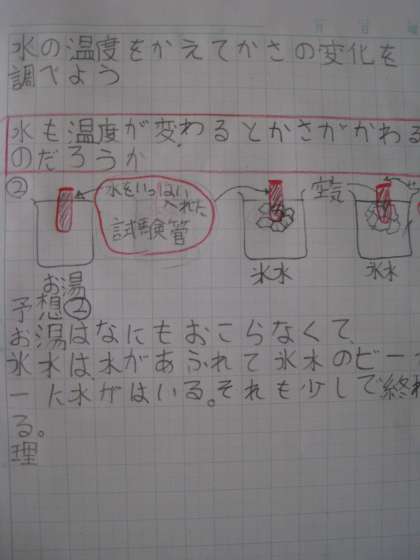 月 日
水の温度をかえてかさの変化を
調べよう
水も温度が変わるとかさがかわる
のだろうか
②
水をいっぱい
入れた
試験管
空気
お湯
氷水
氷水
予想②
お湯はなにもおこらなくて、
氷水は、水があふれて氷水のビーカ
ーに水がはいる。それも少しで終わ
る。
理